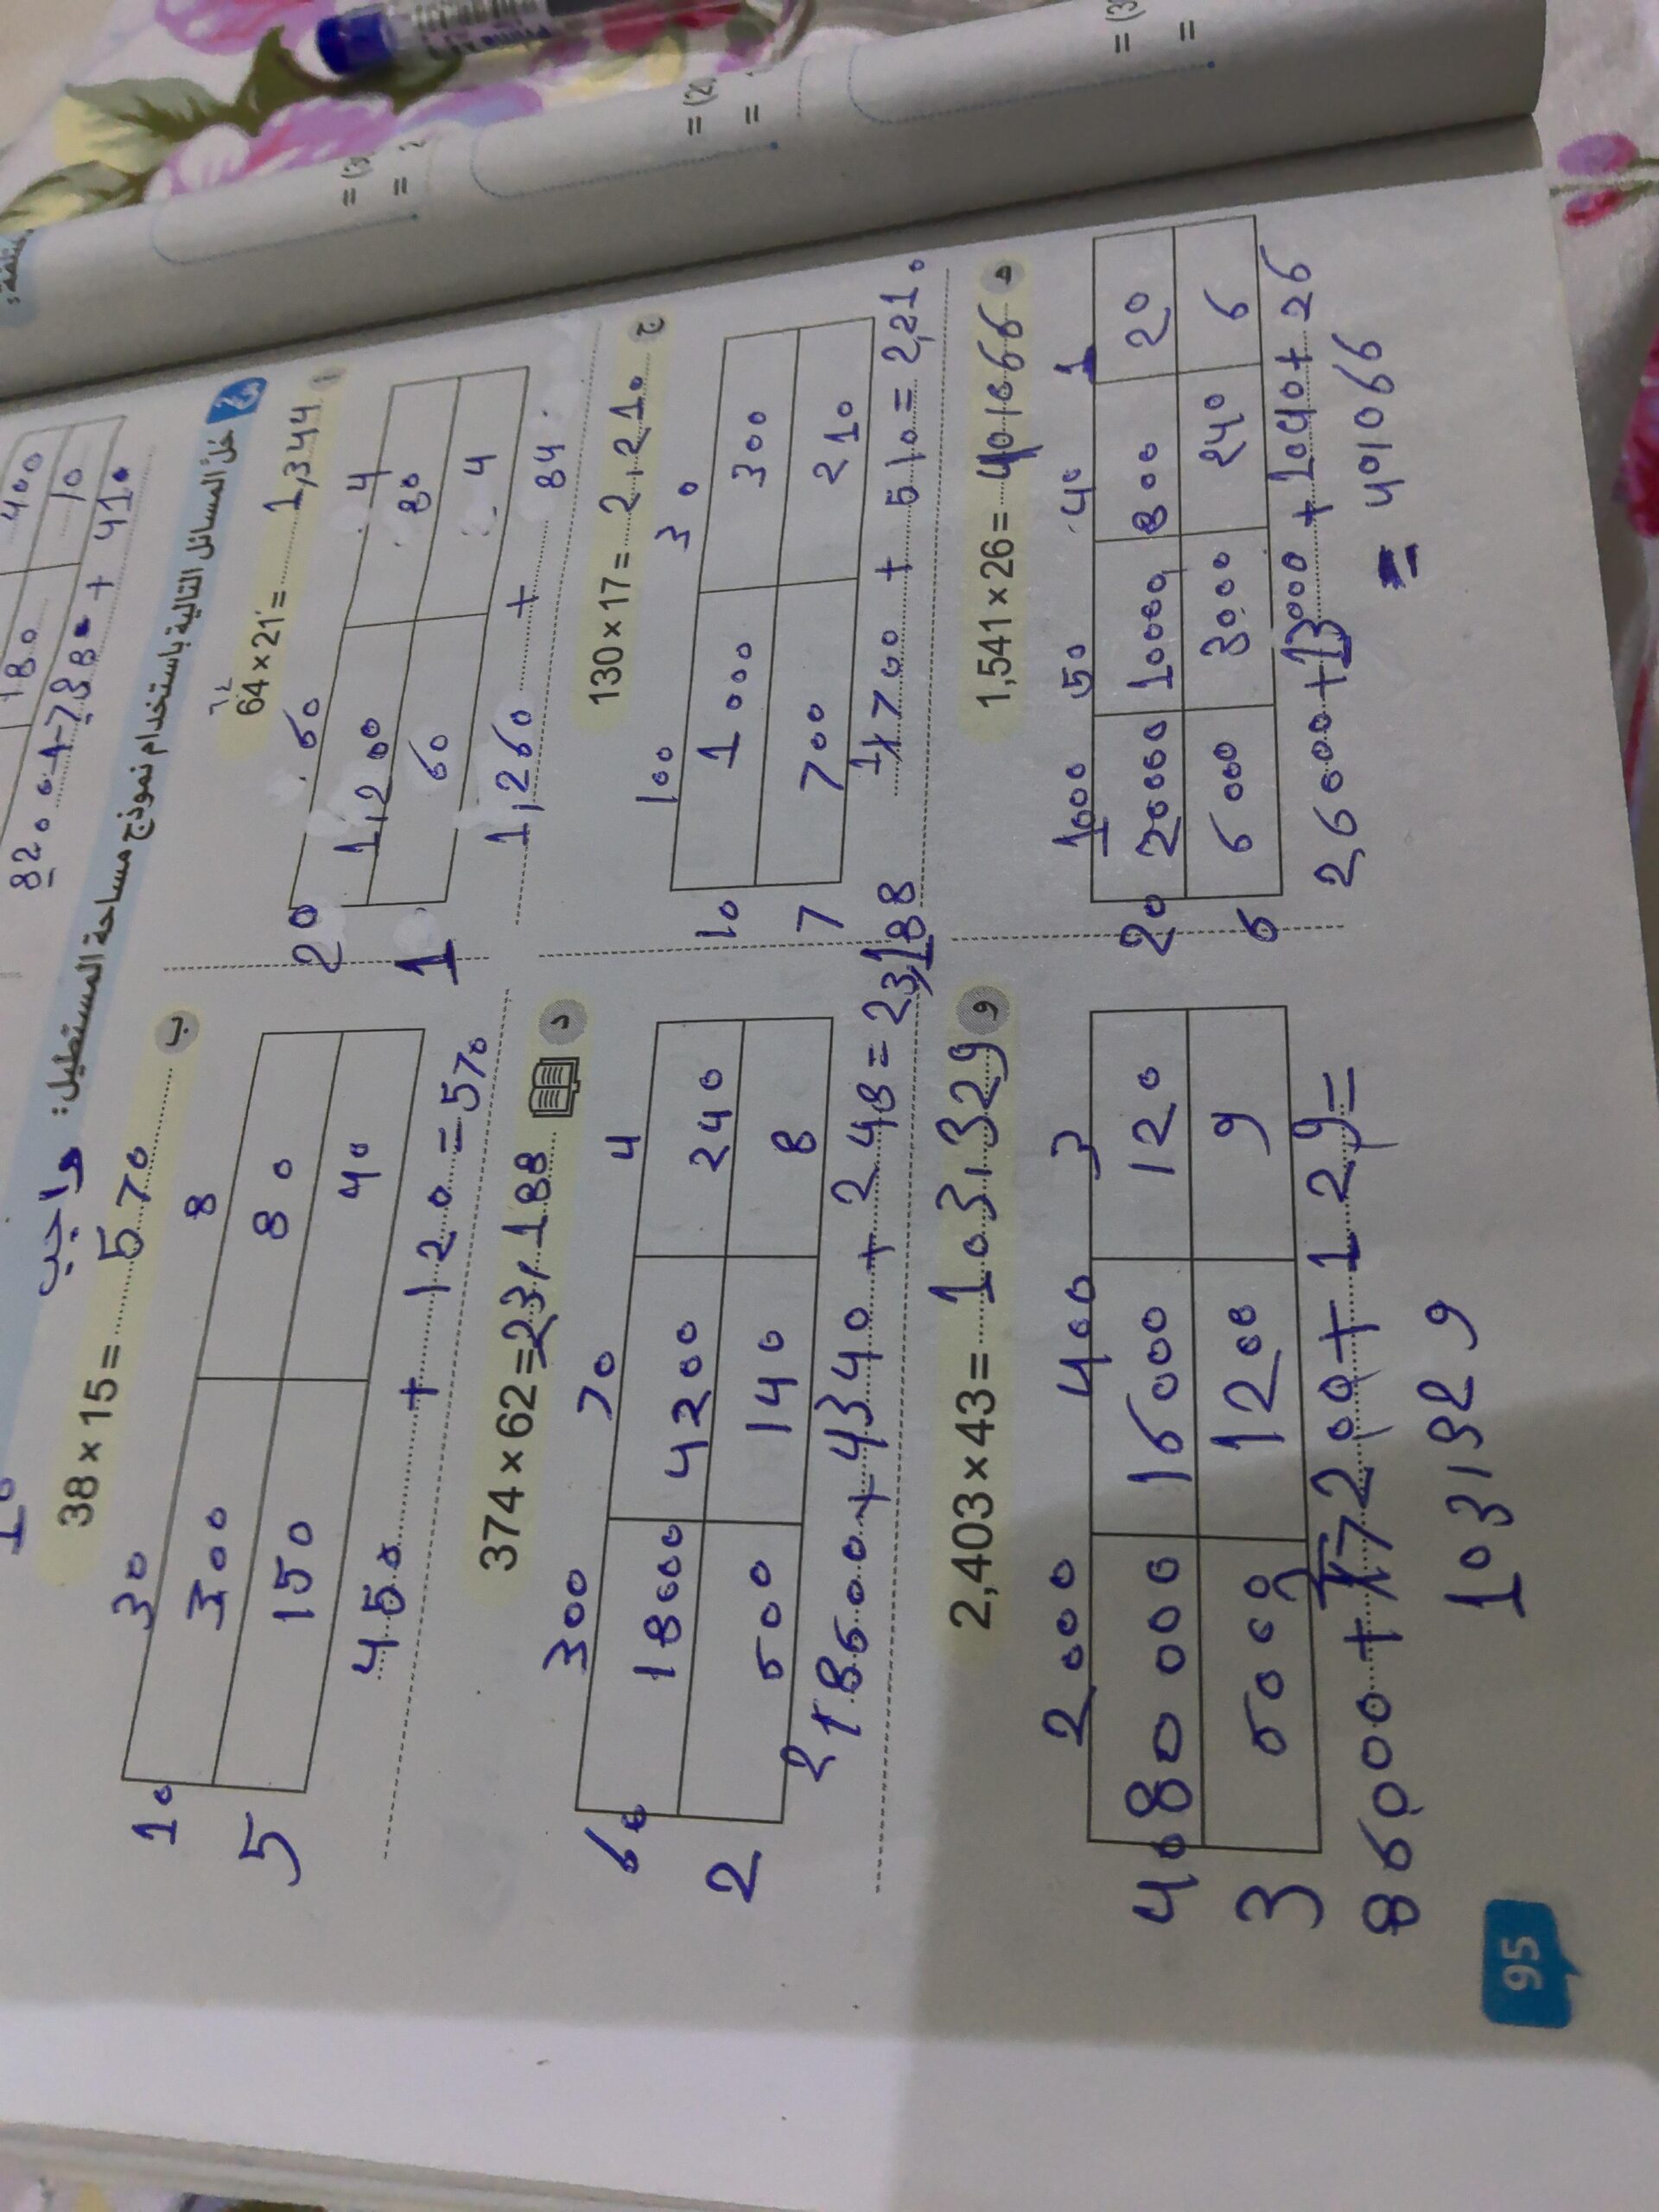 180 400
10
820 + 410
2 حُلَّ المسائل التالية باستخدام نموذج مساحة المستطيل: واجب
أ 64 × 21 = 1,344
60 4
20 1,200 80
1 60 4
1,260 + 84
ب 38 × 15 = 570
30 8
10 300 80
5 150 40
450 + 120 = 570
ج 130 × 17 = 2,210
100 30
10 1000 300
7 700 210
1,700 + 510 = 2,210
د 374 × 62 = 23,188
300 70 4
60 1800 4200 240
2 600 140 8
18600 + 4340 + 248 = 23,188
ه 1,541 × 26 = 40,066
1000 50 40 1
20 20000 10000 800 20
6 6000 3000 240 6
26000 + 13000 + 1040 + 26
= 40,066
و 2,403 × 43 = 103,329
2000 400 3
40 80000 16000 120
3 6000 1200 9
86000 + 17200 + 129 =
103,329
95